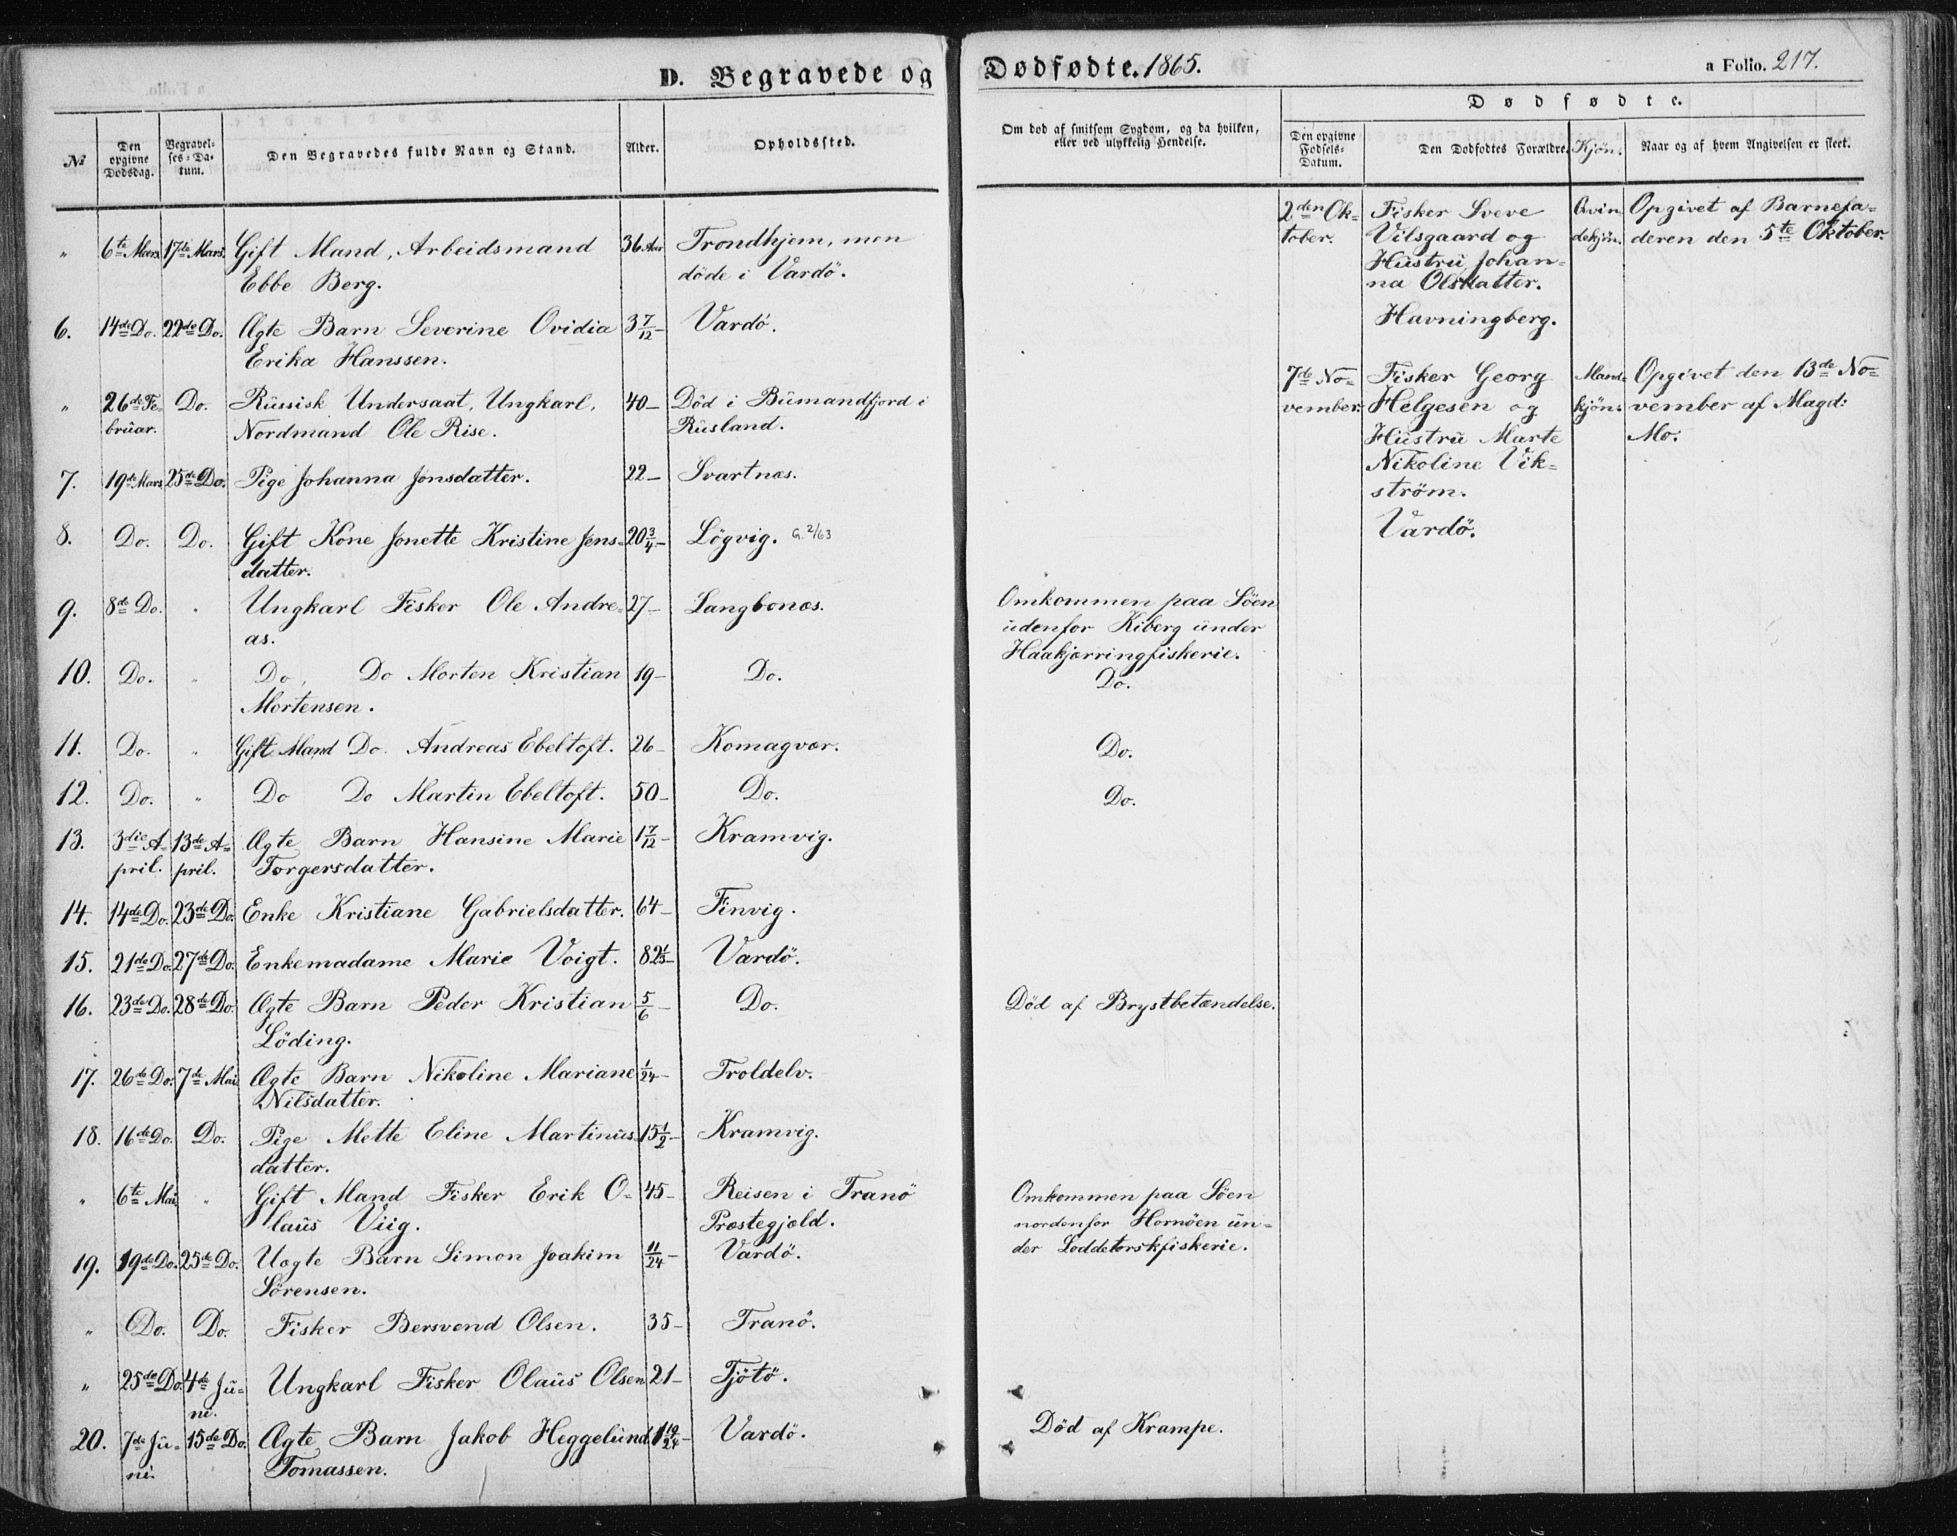 D. Begravede og
Dødfødte. 1865.
a Folio. 217.
№
Den opgivne Dødsdag.
Begravelses-Datum.
Den Begravedes fulde Navn og Stand.
Alder.
Opholdssted.
Om død af smitsom Sygdom, og da hvilken,
eller ved ulykkelig Hendelse.
Dødfødte.
Den opgivne Fødsels-Datum.
Den Dødfødtes Forældre.
Kjøn.
Naar og af hvem Angivelsen er skeet.
" 6te Mars 17de Mars. Gift Mand, Arbeidsmand 36 Aar Trondhjem, men
Ebbe Berg. döde i Vardö.
6. 14de Do. 22de Do. Ægte Barn Severine Ovidia 3 7/12 - Vardö.
Erika Hanssen.
" 26de Fe- Do. Russisk Undersaat, Ungkarl, 40 - Död i Bumandfjord i
bruar. Nordmand Ole Rise. Rusland.
7. 19de Mars 25de Do. Pige Johanna Jonsdatter. 22 - Svartnæs.
8. Do. Do. Gift Kone Jonette Kristine Jens- 20 3/4 - Lögvig. G. 2/63
datter.
9. 8de Do. " Ungkarl Fisker Ole Andre- 27 - Langbonæs. Omkommen paa Söen
as. udenfor Kiberg under
Haakjærringfiskerie.
10. Do. " Do. Do Morten Kristian 19 - Do. Do.
Mortensen.
11. Do. " Gift Mand Do. Andreas Ebeltoft. 26 - Komagvær. Do.
12. Do. " Do Do Martin Ebeltoft. 50 - Do. Do.
13. 3die A- 13de A- Ægte Barn Hansine Marie 1 7/12 - Kramvig.
pril. pril. Torgersdatter.
14. 14de Do. 23de Do. Enke Kristiane Gabrielsdatter. 64 - Finvig.
15. 21de Do. 27de Do. Enkemadame Marie Voigt. 82 - Vardö.
16. 23de Do. 28de Do. Ægte Barn Peder Kristian 5/6 - Do. Död af Brystbetændelse.
Löding.
17. 26de Do. 7de Mai. Ægte Barn Nikoline Mariane 1/24 - Troldelv.
Nilsdatter.
18. 16de Do. Do. Pige Mette Eline Martinus- 15 1/2 - Kramvig.
datter.
" 6te Mai " Gift Mand Fisker Erik O- 45 - Reisen i Tranö Omkommen paa Söen
laus Viig. Præstegjæld. nordenfor Hornöen un-
der Loddetorskfiskerie.
19. 19de Do. 25de Do. Uægte Barn Simon Joakim 11/24 - Vardö.
Sörensen.
" Do. Do. Fisker Bersvend Olsen. 35 - Tranö.
" 25de Do. 4de Ju- Ungkarl Fisker Olaus Olsen 21 - Tjötö.
ni.
20. 7de Ju- 15de Do. Ægte Barn Jakob Heggelund 1 19/24 - Vardö. Död af Krampe.
ni. Tomassen.
2den Ok- Fisker Sveve Qvin- Opgivet af Barnefa-
tober. Vilsgaard og dekjön. deren den 5te Oktober.
Hustru Johan-
na Olsdatter.
Havningberg.
7de No- Fisker Georg Mand- Opgivet den 13de No-
vember. Helgesen og kjön. vember af Magd:
Hustru Marte Mo.
Nikoline Vik-
ström.
Vardö.